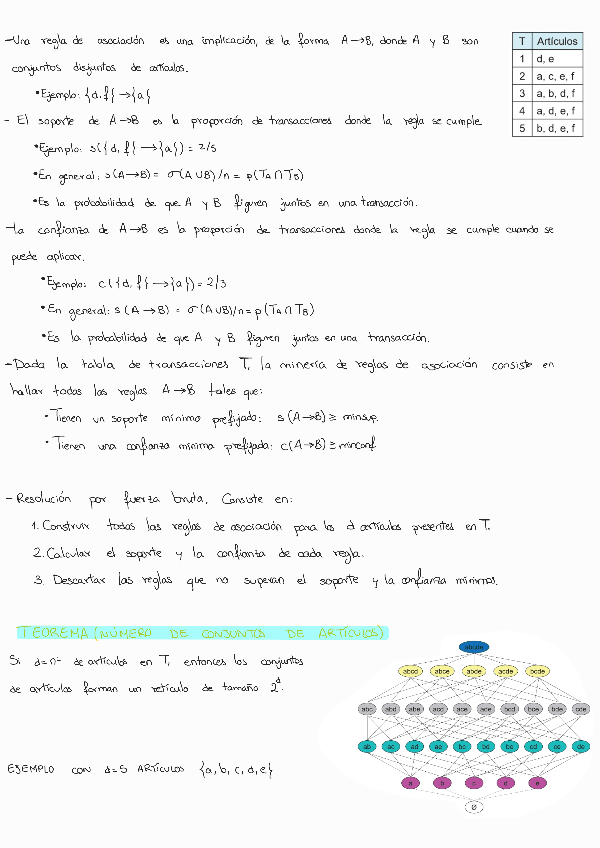 -Una regla de asociación es una implicación, de la forma A→B, donde A y B son
conjuntos disjuntos de artículos.
•Ejemplo: {d,f}→{a}
- El soporte de A→B es la proporción de transacciones donde la regla se cumple
•Ejemplo: s({d,f}→{a}) = 2/5
•En general: s(A→B) = σ(A∪B)/n = p(TA∩TB)
•Es la probabilidad de que A y B figuren juntos en una transacción.
-La confianza de A→B es la proporción de transacciones donde la regla se cumple cuando se
puede aplicar.
•Ejemplo: c({d,f}→{a}) = 2/3
•En general: s(A→B) = σ(A∪B)/n = p(TA∩TB)
•Es la probabilidad de que A y B figuren juntos en una transacción.
-Dada la tabla de transacciones T, la minería de reglas de asociación consiste en
hallar todas las reglas A→B tales que:
•Tienen un soporte mínimo prefijado: s(A→B) ≥ minsup.
•Tienen una confianza mínima prefijada: c(A→B) ≥ minconf
-Resolución por fuerza bruta. Consiste en:
1. Construir todas las reglas de asociación para los d artículos presentes en T.
2. Calcular el soporte y la confianza de cada regla.
3. Descartar las reglas que no superan el soporte y la confianza mínimos.
TEOREMA (NÚMERO DE CONJUNTOS DE ARTÍCULOS)
Si d=nº de artículos en T, entonces los conjuntos
de artículos forman un retículo de tamaño 2^d.
EJEMPLO CON d=5 ARTÍCULOS {a,b,c,d,e}
T Artículos
1 d, e
2 a, c, e, f
3 a, b, d, f
4 a, d, e, f
5 b, d, e, f
abcde
abcd abce abde acde bcde
abc abd abe acd ace ade bcd bce bde cde
ab ac ad ae bc bd be cd ce de
a b c d e
Ø